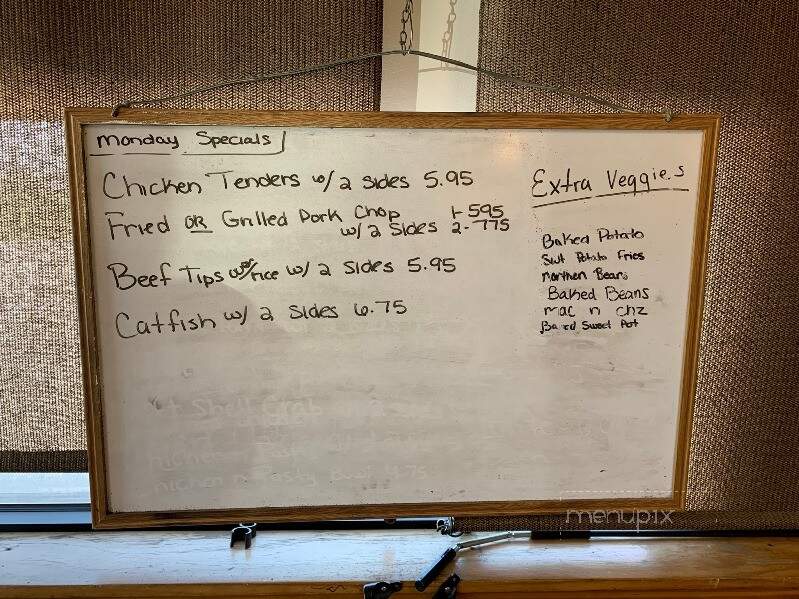 Monday Specials
Chicken Tenders w/ 2 sides 5.95
Fried OR Grilled Pork Chop 1- 595
w/ 2 Sides 2- 775
Beef Tips over rice w/ 2 Sides 5.95
Catfish w/ 2 Sides 6.75
Shell Crab
Extra Veggies
Baked Potato
Swt Potato Fries
Northen Beans
Baked Beans
mac n chz
Baked Sweet Pot
menupix